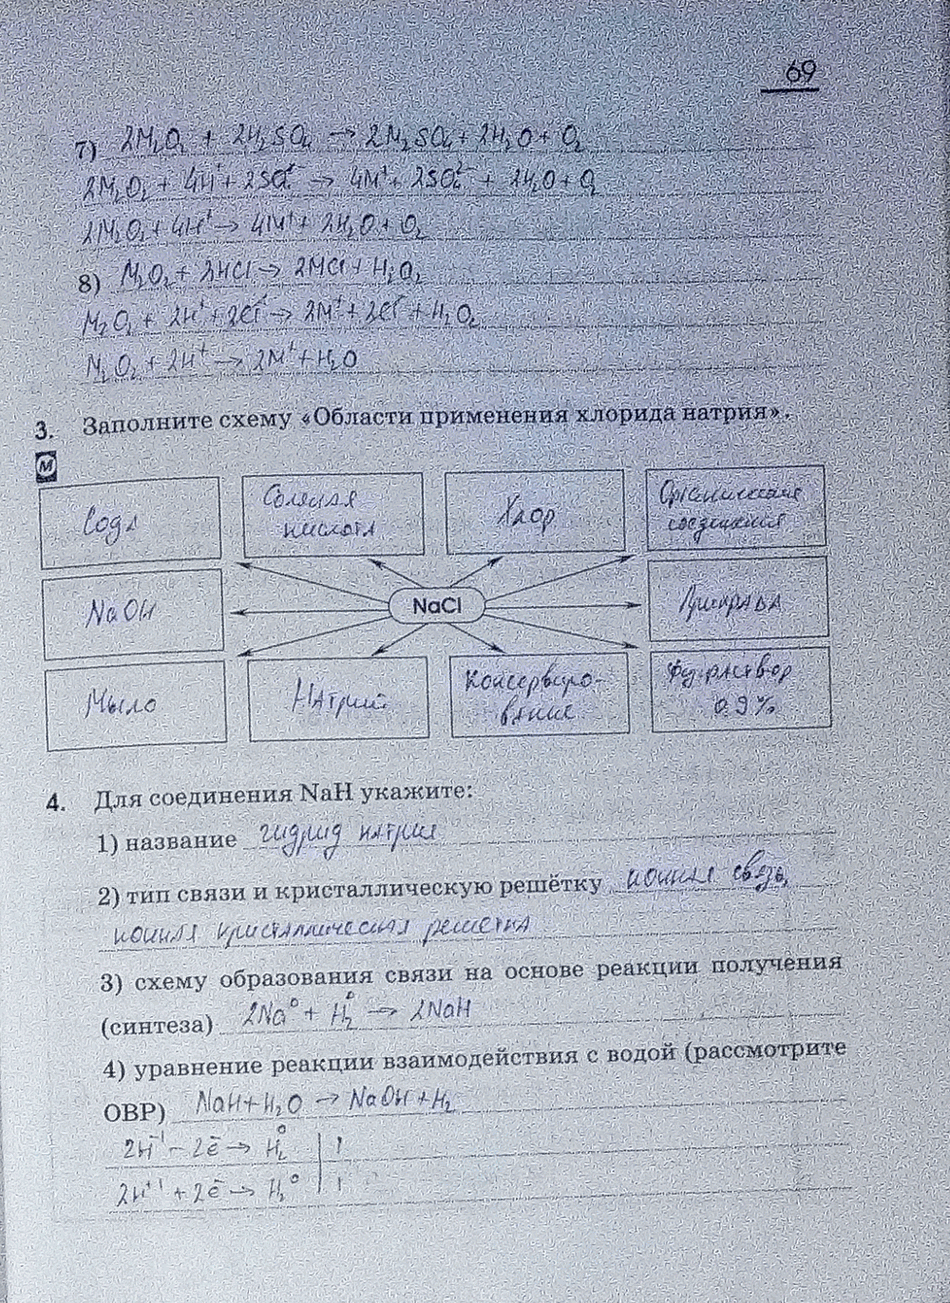 69
7) 2M₂O₂ + 2H₂SO₄ → 2M₂SO₄ + 2H₂O + O₂
2M₂O₂ + 4H⁺ + 2SO₄²⁻ → 4M⁺ + 2SO₄²⁻ + 2H₂O + O₂
2M₂O₂ + 4H⁺ → 4M⁺ + 2H₂O + O₂
8) M₂O₂ + 2HCl → 2MCl + H₂O₂
M₂O₂ + 2H⁺ + 2Cl⁻ → 2M⁺ + 2Cl⁻ + H₂O₂
M₂O₂ + 2H⁺ → 2M⁺ + H₂O
3. Заполните схему «Области применения хлорида натрия».
М
Сода
Соляная
кислота
Хлор
Органические
соединения
NaOH
NaCl
Приправа
Мыло
Натрий
Консервиро-
вание
Физ.раствор
0.9%
4. Для соединения NaH укажите:
1) название гидрид натрия
2) тип связи и кристаллическую решётку ионная связь,
ионная кристаллическая решетка
3) схему образования связи на основе реакции получения
(синтеза) 2Na⁰ + H₂⁰ → 2NaH
4) уравнение реакции взаимодействия с водой (рассмотрите
ОВР) NaH + H₂O → NaOH + H₂
2H⁻¹ - 2ē → H₂⁰ | 1
2H⁺¹ + 2ē → H₂⁰ | 1